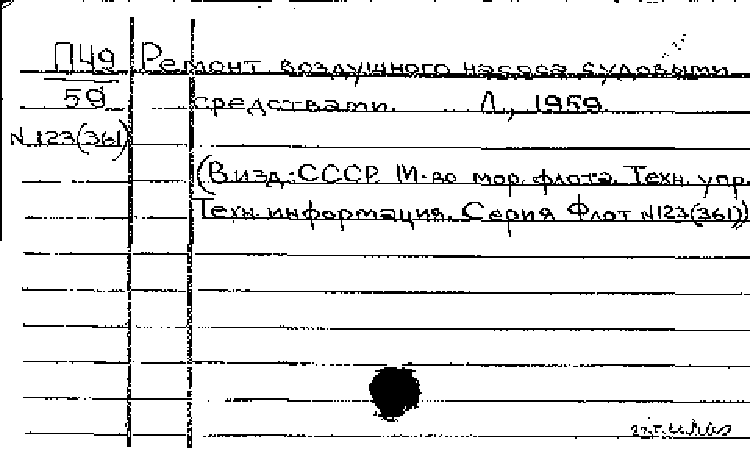 П49 Ремонт воздушного насоса судовыми
59 средствами. Л., 1959
N 123(361)
(В изд.: СССР. М-во мор. флота. Техн. упр.
Техн. информация. Серия Флот N123(361))